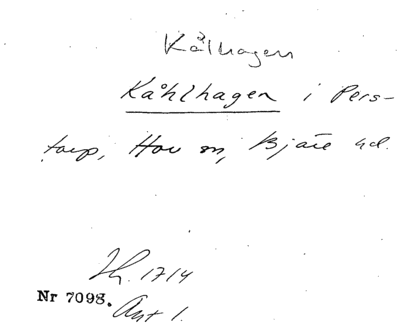 Kålhagen
Kåhlhagen i Pers-
torp, Hov sn, Bjäre hd.
Jb. 1714
Nr 7098. Ant 1.